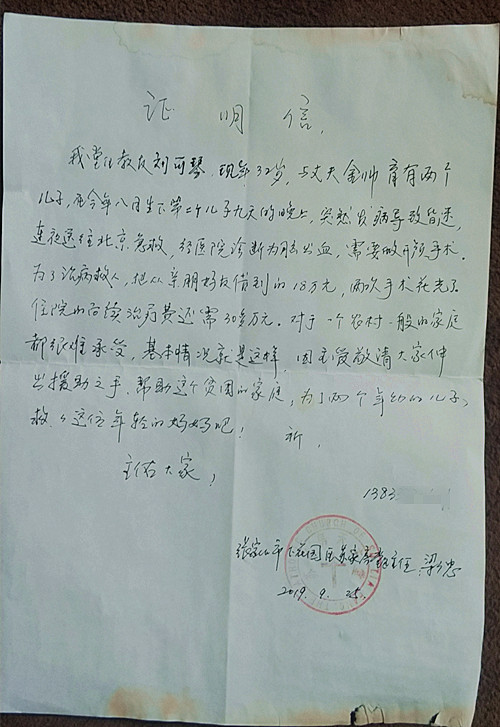 证明信,
我堂的教友刘可琴,现年32岁,与丈夫金帅育有两个
儿子,在今年八月生下第二个儿子九天的晚上,突然发病导致昏迷,
连夜送往北京急救,经医院诊断为脑出血,需要做开颅手术。
为了治病救人,他从亲朋好友借到的18万元,两次手术花光了
住院的后续治疗费还需30多万元。对于一个农村一般的家庭
都很难承受,基本情况就是这样,因主爱敬请大家伸
出援助之手,帮助这个贫困的家庭,为了两个年幼的儿子,
救救这位年轻的妈妈吧! 祈,
主佑大家,
1383
张家口市下花园区苏家房教主任:梁忠
2019.9.25.